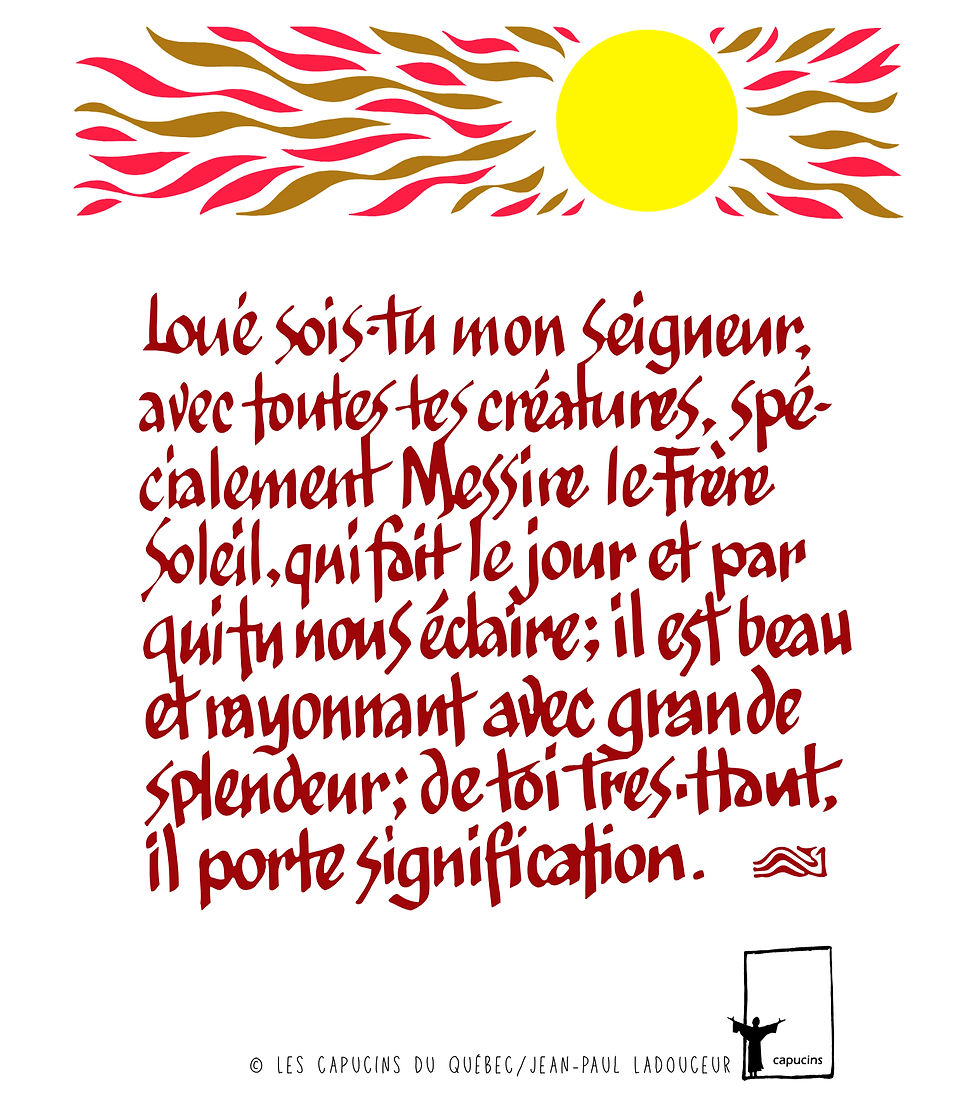 Loué sois-tu mon Seigneur,
avec toutes tes créatures, spé-
cialement Messire le Frère
Soleil, qui fait le jour et par
qui tu nous éclaire; il est beau
et rayonnant avec grande
splendeur; de toi Tres-Haut,
il porte signification.
capucins
© LES CAPUCINS DU QUÉBEC/JEAN-PAUL LADOUCEUR